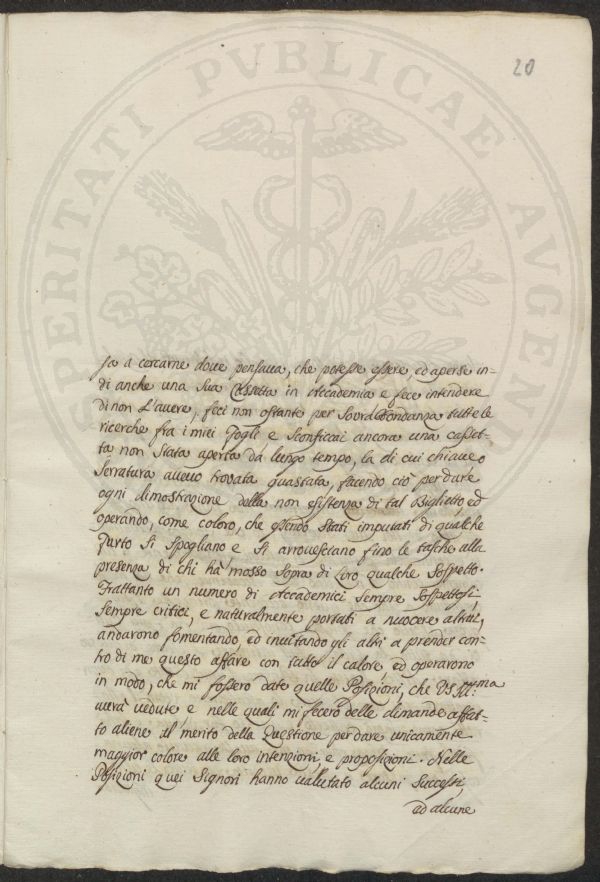 20
SPERITATI PVBLICAE AVGEND
sa a cercarne dove pensava, che potesse essere, ed aperse in-
di anche una sua Cassetta in Accademia e fece intendere
di non l'avere, feci non ostante per Sovrabbondanza tutte le
ricerche fra i miei Fogli e Sconficcai ancora una casset-
ta non Stata aperta da lungo tempo, la di cui chiave o
Serratura avevo trovata guastata, facendo ciò per dare
ogni dimostrazione della non esistenza di tal Biglietto, ed
operando, come coloro, che essendo Stati imputati di qualche
Furto Si Spogliano e Si arrovesciano fino le tasche alla
presenza di chi hà mosso Sopra di Loro qualche Sospetto.
Frattanto un numero di Accademici Sempre Sospettosi,
Sempre critici, e naturalmente portati a nuocere altrui,
andarono fomentando, ed invitando gli altri a prender con-
tro di me questo affare con tutto il calore ed operarono
in modo, che mi fossero date quelle Posizioni, che VS Ill:ma
avrà vedute e nelle quali mi fecero delle dimande affat-
to aliene al merito della Questione per dare unicamente
maggior colore alle loro intenzioni, e proposizioni. Nelle
Posizioni quei Signori hanno valutato alcuni Successi,
ad alcune